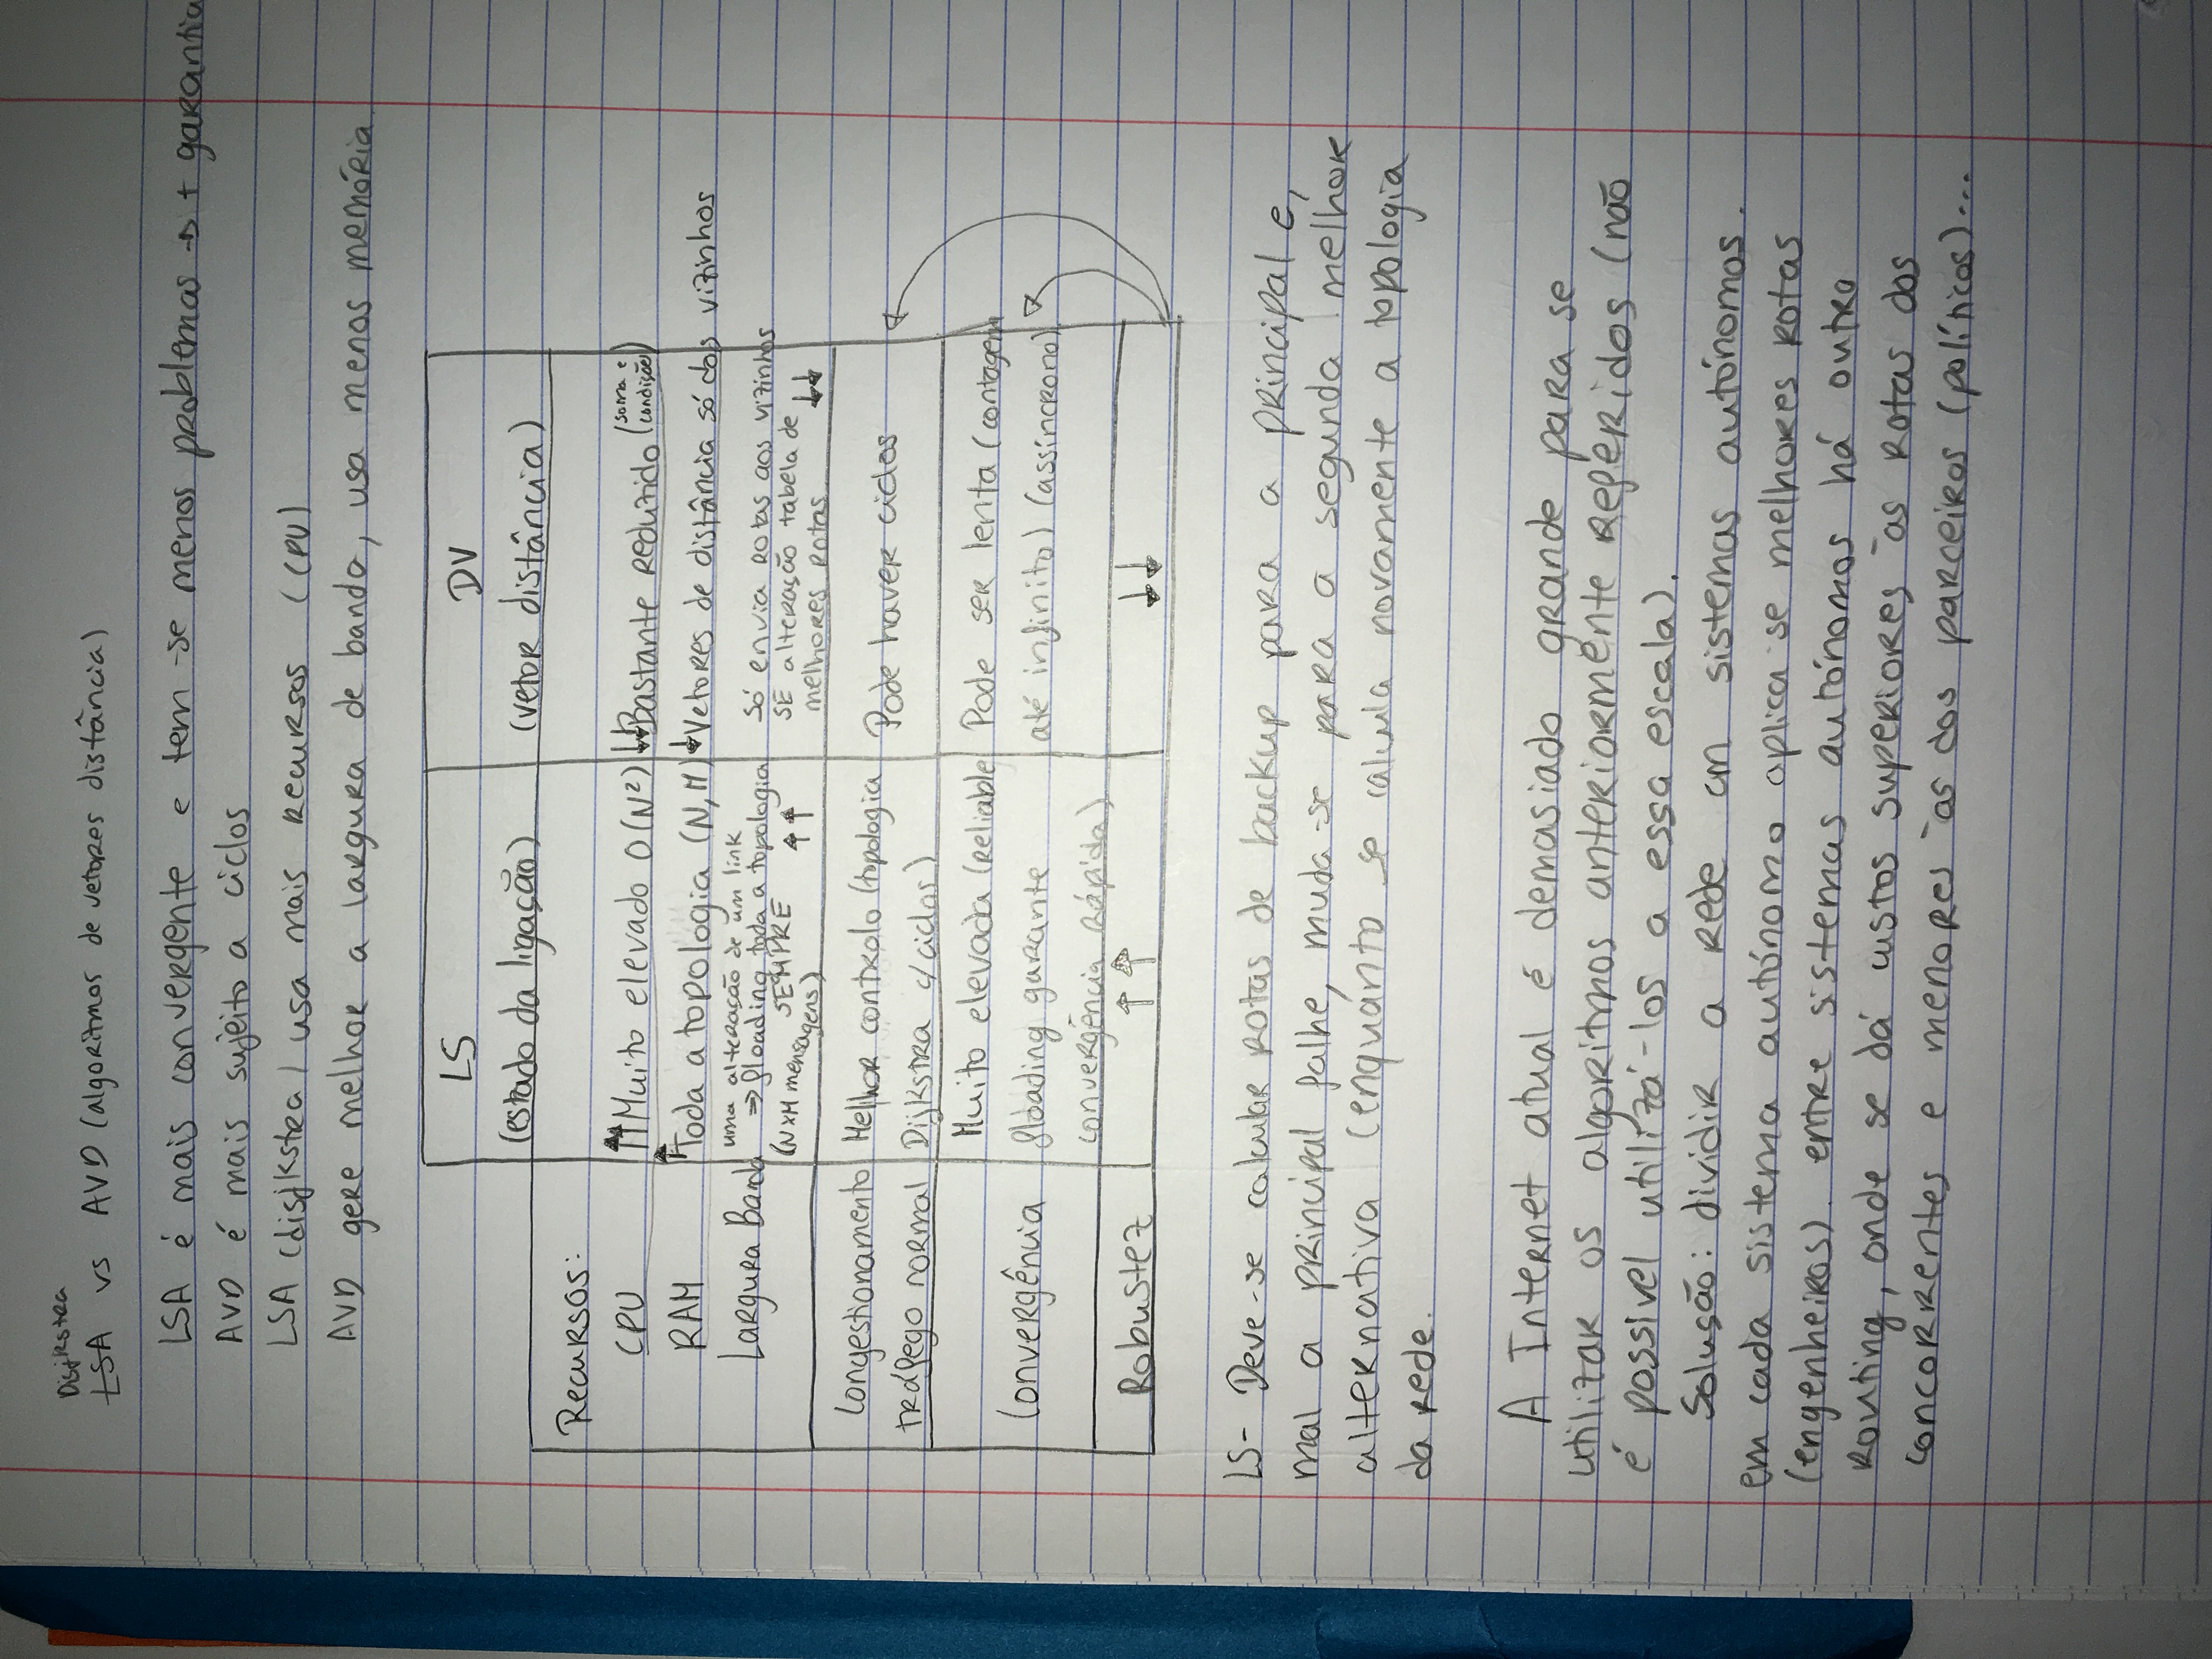 Disjkstra
LSA vs AVD (algoritmos de vetores distância)
LSA é mais convergente e tem-se menos problemas → + garantia
AVD é mais sujeito a ciclos
LSA (disjkstra) usa mais recursos (CPU)
AVD gere melhor a largura de banda, usa menos memória
LS DV
(estado da ligação) (vetor distância)
Recursos:
CPU ↑↑ Muito elevado O(N²) ↓↓ Bastante reduzido (soma e condição)
RAM ↑ Toda a topologia (N, M) ↓ Vetores de distância só dos vizinhos
Largura Banda
uma alteração de um link
⇒ floading toda a topologia
SEMPRE
(N×M mensagens) ↑↑
Só envia rotas aos vizinhos
SE alteração tabela de
melhores rotas ↓↓
Congestionamento
tráfego normal
Melhor controlo (topologia
Dijkstra c/ciclos)
Pode haver ciclos
Convergência
Muito elevada (reliable
floading garante
convergência rápida)
Pode ser lenta (contagem
até infinito) (assíncrono)
Robustez ↑↑ ↓↓
LS- Deve-se calcular rotas de backup para a principal e,
mal a principal falhe, muda-se para a segunda melhor
alternativa (enquanto se calcula novamente a topologia
da rede.
A Internet atual é demasiado grande para se
utilizar os algoritmos anteriormente referidos (não
é possível utilizá-los a essa escala).
Solução: dividir a rede em sistemas autónomos.
em cada sistema autónomo aplica-se melhores rotas
(engenheiros). entre sistemas autónomos há outro
routing, onde se dá custos superiores às rotas dos
concorrentes e menores às dos parceiros (políticos)...